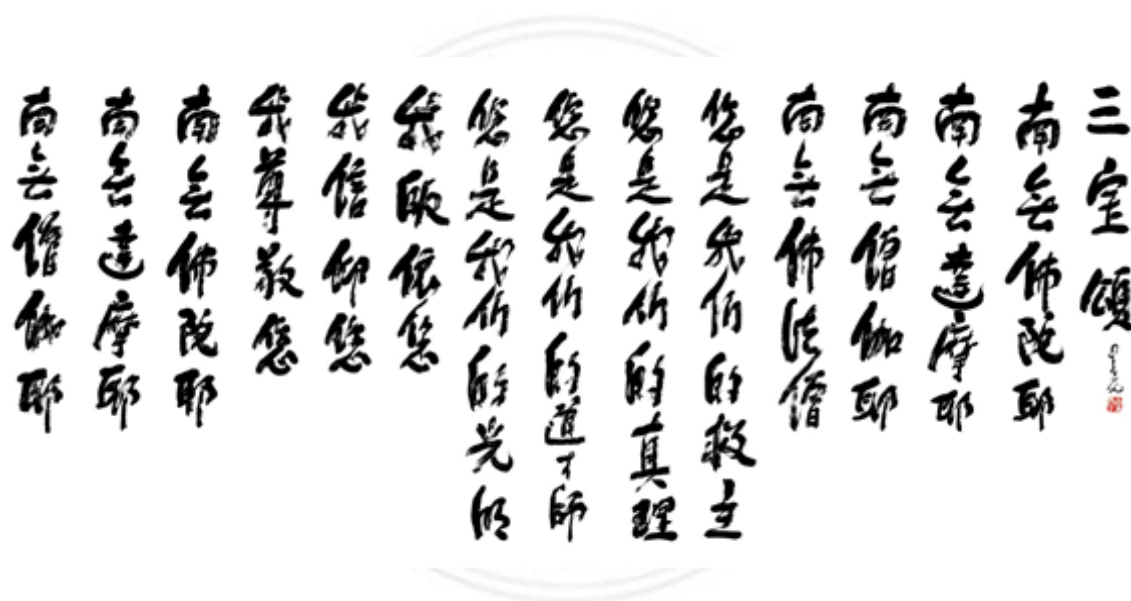 三宝頌
南无佛陀耶
南无達摩耶
南无僧伽耶
南无佛法僧
您是我们的救主
您是我们的真理
您是我们的導師
您是我们的光明
我皈依您
我信仰您
我尊敬您
南无佛陀耶
南无達摩耶
南无僧伽耶